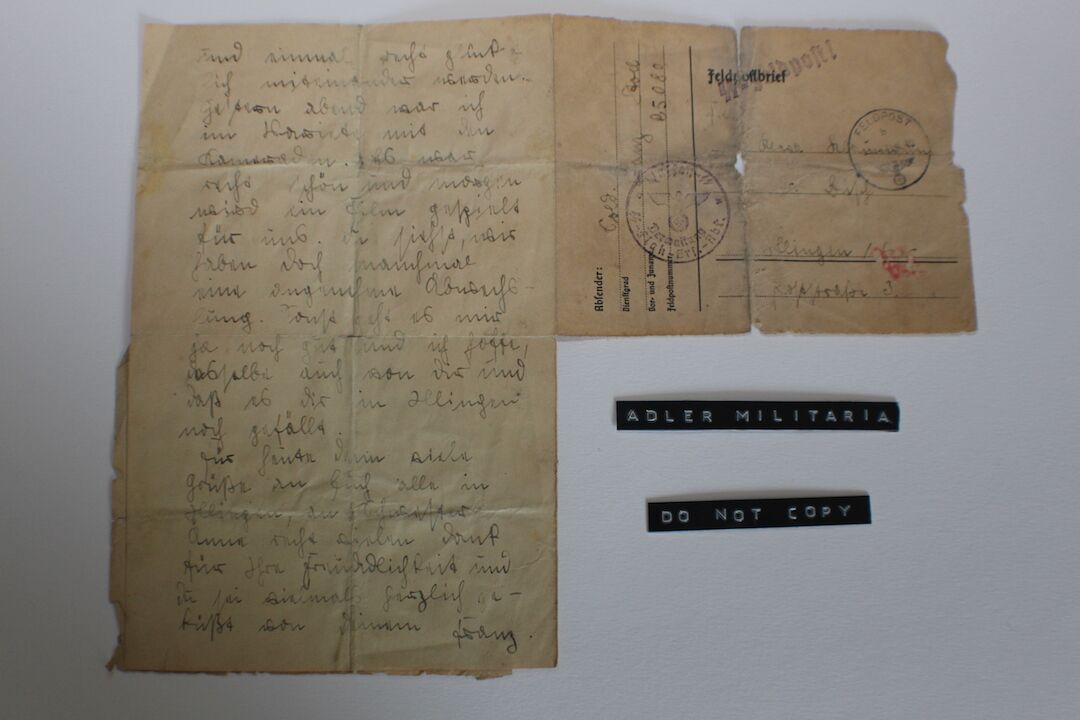 und einmal recht glück-
lich miteinander werden.
Gestern abend war ich
im Varieté mit den
Kameraden. Es war
recht schön und morgen
wird ein Film gespielt
für uns. Du siehst, wir
haben doch manchmal
eine angenehme Abwechs-
lung. Sonst geht es mir
ja noch gut und ich hoffe,
dasselbe auch von dir und
daß es dir in Illingen
noch gefällt.
Für heute denn viele
Grüße an Euch alle in
Illingen, an Schwester
Anne recht vielen Dank
für Ihre Freundlichkeit und
Du sei vielmals herzlich ge-
küßt von Deinem Franz.
Feldpostbrief
Feldpost!
FELDPOST
b
Illingen
3.
Absender:
Dienstgrad
Vor- und Zuname
Feldpostnummer
Sold.
25082
Verwaltung
ADLER MILITARIA
DO NOT COPY